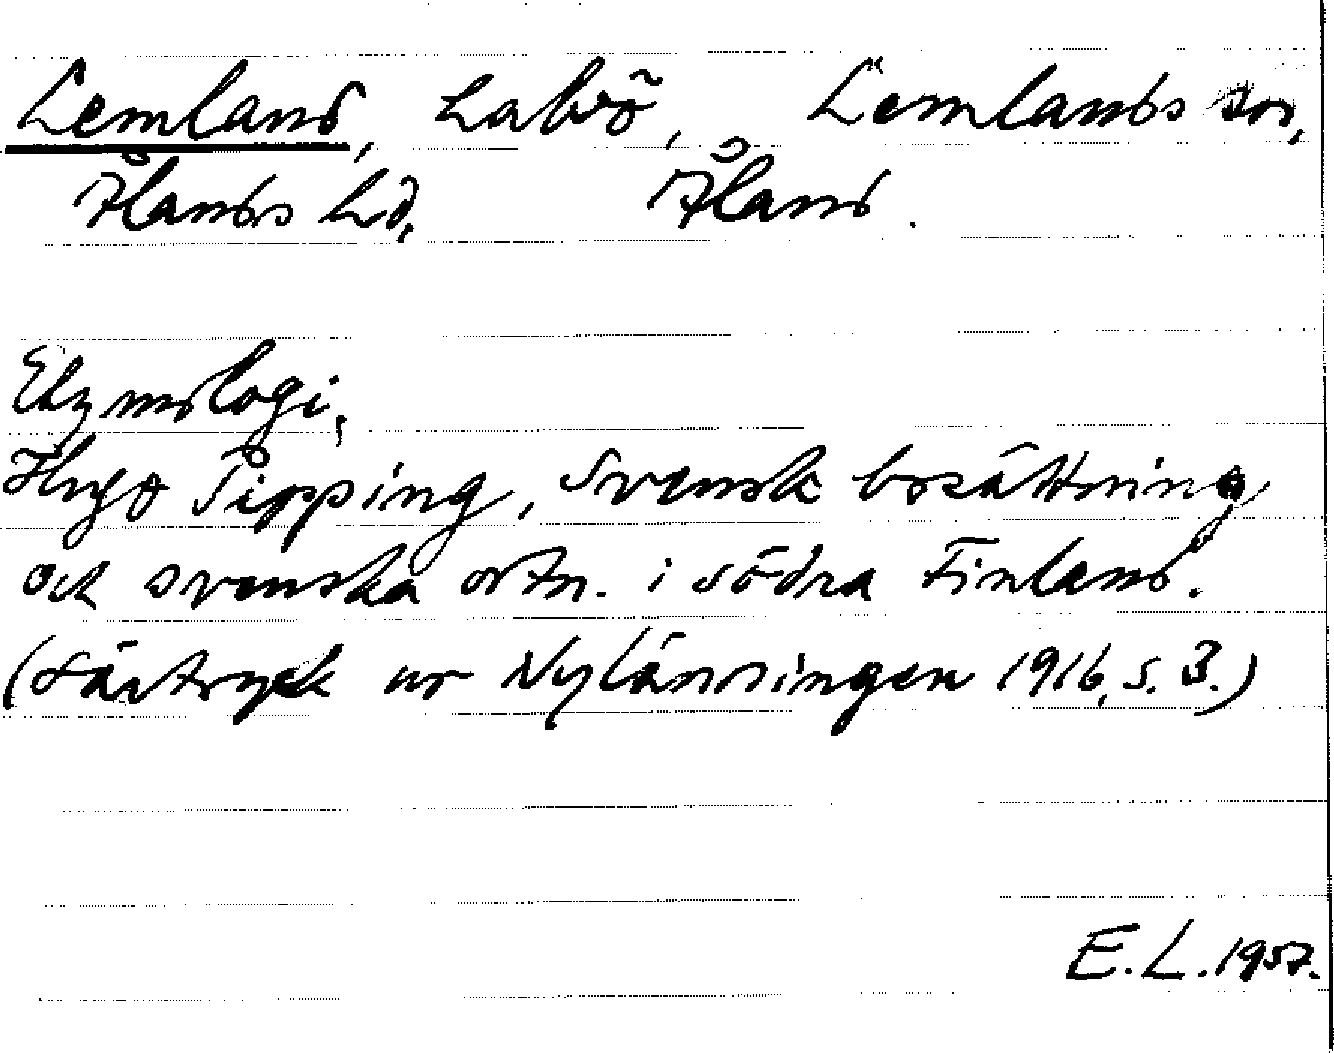 Lemland, Labö, Lemlands sn,
Ålands hd, Åland.
Etymologi,
Hugo Pipping, Svensk bosättning
och svenska ortn. i södra Finland.
(Särtryck ur Nylänningen 1916, s. 3.)
E.L. 1957.